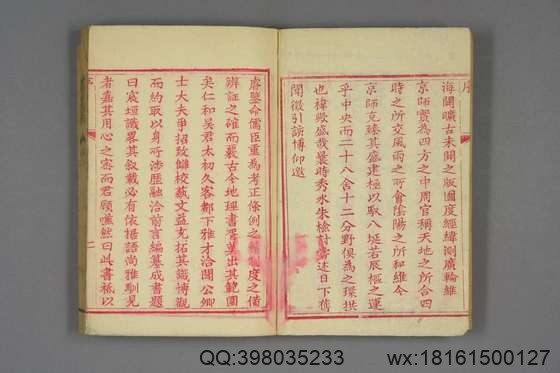 序
海闢曠古未開之版圖度經緯測廣輪維
京師實為四方之中周官稱天地之所合四
時之所交風雨之所會陰陽之所和維今
京師克臻其盛建極以馭八埏若辰樞之運
乎中央而二十八舍十二分野俱為之環拱
也猗歟盛哉曩時秀水朱檢討述日下舊
聞徵引該博仰邀
睿鑒命儒臣重為考正條例之制度之備
辨証之確而裒古今地理書胥莫出其範圍
矣仁和吳君太初久客都下雅才洽聞公卿
士大夫爭招致讎校藝文益充拓其識博觀
而約取以身所涉歷融洽前言編纂成書題
曰宸垣識畧其敘載必有依據語尚雅馴見
者嘉其用心之密而君顧嗛然曰此書祗以
序
二
QQ:398035233
wx:18161500127